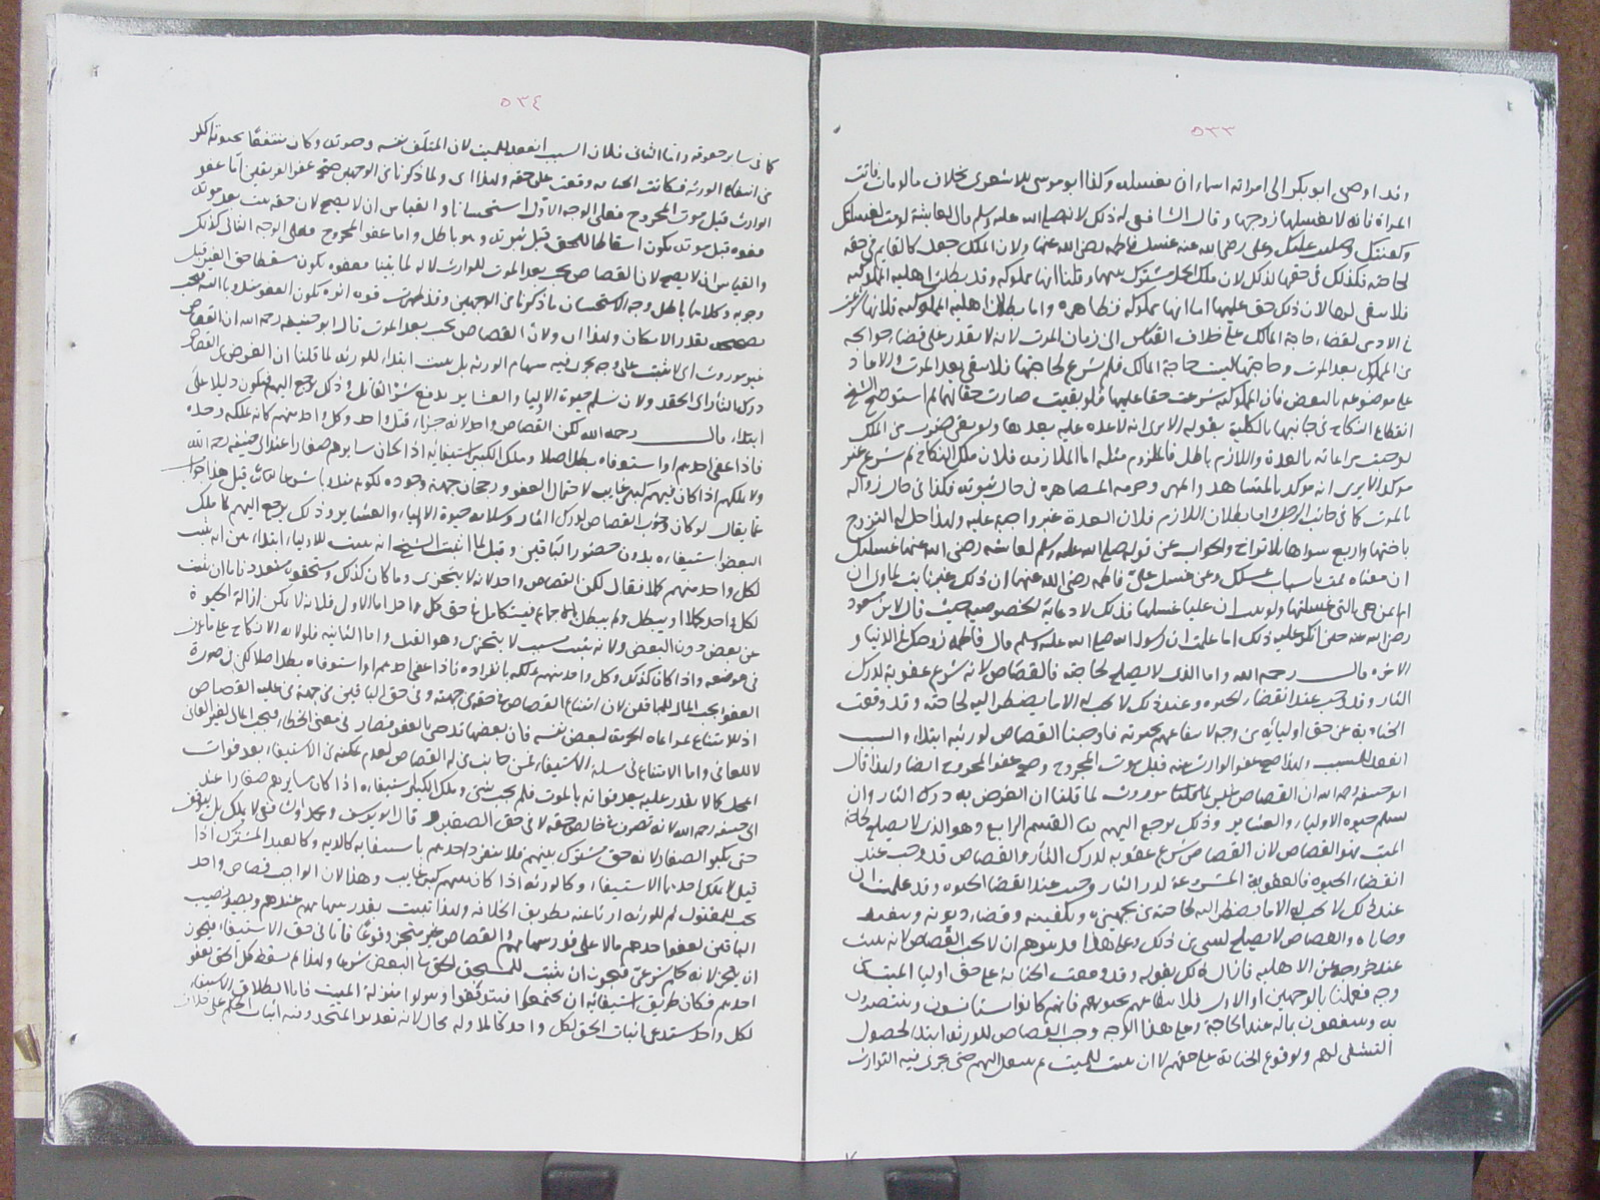 ٥٣٣
وقد اوصى ابو بكر الى امراته اسماء ان تغسله وكذا ابو موسى الاشعرى بخلاف ما لو ماتت
المراة فانه لا يغسلها زوجها وقال الشافعى له ذلك لانه صلى الله عليه وسلم قال لعايشة لو مت لغسلتك
وكفنتك وصليت عليك وعلى رضى الله عنه غسل فاطمة رضى الله عنها ولان الملك جعل كالقايم فى حقه
لحاجته فكذلك فى حقها لذلك لان ملك الحل مشترك بينهما وقلنا انها مملوكة وقد بطلت اهلية المملوكية
فلا يبقى لها لان ذلك حق عليها اما انها مملوكة فظاهر واما بطلان اهلية المملوكية فلانها
فى الادمى لقضاء حاجة المالك على خلاف القياس الى زمان الموت لانه لا يقدر على قضاء حوايجه
من المملوك بعد الموت وحاجتها ليست حاجة المالك فلم تشرع لحاجتها فلا تبقى بعد الموت
على موضوعه بالنقض فان المملوكية شرعت حقا عليها فلو بقيت صارت حقا لها ثم استوضح الشيخ
انقطاع النكاح فى جانبها بالكلية بقوله الا يرى انه لا عدة عليه بعدها ولو بقى ضرب من الملك
لوجبت مراعاته بالعدة واللازم باطل فالملزوم مثله اما الملازمة فلان ملك النكاح لم يشرع غير
موكد الا يرى انه موكد بالمشاهد والمهر وحرمة المصاهرة فى حال ثبوته فكذا فى حال زواله
بالموت كما فى جانب الرجل واما بطلان اللازم فلان العدة غير واجبة عليه ولهذا حل له التزوج
باختها واربع سواها بلا تراخ والجواب عن قوله صلى الله عليه وسلم لعايشة رضى الله عنها غسلتك
ان معناه قمت باسباب غسلك وعن غسل على فاطمة رضى الله عنهما ان ذلك غير ثابت لما روى ان
ام ايمن هى التى غسلتها ولو ثبت ان عليا غسلها فذلك لادعائه الخصوصية حيث قال لابن مسعود
رضى الله عنه حين انكر عليه ذلك اما علمت ان رسول الله صلى الله عليه وسلم قال فاطمة زوجتك فى الدنيا و
الاخرة قال رحمه الله واما الذى لا يصلح لحاجته فالقصاص لانه شرع عقوبة لدرك
الثار وقد وجب عند انقضاء الحيوة وعند ذلك لا يجب له الا ما يضطر اليه لحاجته وقد وقعت
الجناية على حق اوليايه من وجه لانتفاعهم بحيوته فاوجبنا القصاص لورثته ابتداء والسبب
انعقد للمست ولهذا صح عفو الوارث عنه قبل موت المجروح وصح عفو المجروح ايضا ولهذا قال
ابو حنيفة رحمه الله ان القصاص غير موروث لما قلنا ان الغرض به درك الثار وان
تسلم حيوة الاولياء والعشاير وذلك يرجع اليهم هذا القسم الرابع وهو الذى لا يصلح لحاجة
الميت فهو القصاص لان القصاص شرع عقوبة لدرك الثار والقصاص قد وجب عند
انقضاء الحيوة فالعقوبة المشرعة لدرك الثار وجبت عند انقضاء الحيوة وقد علمت ان
عند ذلك لا يجب له الا ما يضطر اليه لحاجته من تجهيزه وتكفينه وقضاء ديونه وتنفيذ
وصاياه والقصاص لا يصلح لشى من ذلك وعلى هذا قد يتوهم ان لا يجب القصاص لانه يثبت
عند خروجه عن الاهلية فازال ذلك بقوله وقد وقعت الجناية على حق اوليا الميت من
وجه فعلنا بالوجهين اما الاول فلانتفاعهم بحيوته فانهم كانوا يستانسون وينتصرون
به وينتفعون بماله عند الحاجة وعلى هذا الوجه وجب القصاص للورثة ابتدا لحصول
التشفى لهم ولوقوع الجناية على حقهم لا ان يثبت للميت ثم ينتقل اليهم حتى يجرى فيه التوارث
٥٣٤
كما فى ساير حقوقه واما الثانى فلان السبب انعقد للميت لان المتلف نفسه وحيوته وكان منتفعا بحيوته اكثر
من انتفاع الورثة فكانت الجناية وقعت على حقه ولهذا اى ولما ذكرنا من الوجهين صح عفو الفريقين اما عفو
الوارث قبل موت المجروح فعلى الوجه الاول استحسانا والقياس ان لا يصح لان حقه يثبت بعد موته
فعفوه قبل موته يكون اسقاطا للحق قبل ثبوته وهو باطل واما عفو المجروح فعلى الوجه الثانى كذلك
والقياس ان لا يصح لان القصاص يجب بعد الموت للوارث لا له لما بينا فعفوه يكون مسقطا حق الغير قبل
وجوبه وكلاهما باطل وجه الاستحسان ما ذكرنا من الوجهين وقد ظهرت قوة اثره لكون العفو مندوبا اليه فيجب
تصحيحه بقدر الامكان ولهذا اى ولان القصاص يجب بعد الموت قال ابو حنيفة رحمه الله ان القصاص
غير موروث اى لا يثبت على وجه يجرى فيه سهام الورثة بل يثبت ابتداء للورثة لما قلنا ان الغرض من القصاص
درك الثار اى الحقد ولان تسلم حيوة الاولياء والعشاير بدفع شر القاتل وذلك يرجع اليهم فيكون دليلا على
ابتداء قال رحمه الله لكن القصاص واحد لانه جزاء قتل واحد وكل واحد منهم كانه يملكه وحده
فاذا عفى احدهم او استوفاه بطل اصلا وملك الكبير استيفائه اذا كان سايرهم صغارا عند ابى حنيفة رحمه الله
ولا يملكه اذا كان فيهم كبير غايب لاحتمال العفو ورجحان جهة وجوده لكونه مندوبا شرعا قيل هذا جواب
عما يقال لو كان وجوب القصاص لدرك الثار وسلامة حيوة الاولياء والعشاير وذلك يرجع اليهم لما ملك
البعض استيفاءه بدون حضور الباقين وقيل لما اثبت الشيخ انه يثبت للاولياء ابتداء بين انه يثبت
لكل واحد منهم كملا فقال لكن القصاص واحد لانه لا يتجزى وما كان كذلك ومستحقوه متعدد فاما ان يثبت
لكل واحد كملا او يبطل ولم يبطل بالاجماع فيتكامل فى حق كل واحد اما الاول فلانه لا يمكن ازالة الحيوة
عن بعض دون البعض ولانه يثبت بسبب لا يتجزى وهو القتل واما الثانية فلولاية الانكاح على ما عرف
فى موضعه واذا كان كذلك وكل واحد منهم يملكه بانفراده فاذا عفى احدهم او استوفاه بطل اصلا لكن فى صورة
العفو يجب المال للباقين لان امتناع القصاص فى حقه من جهته وفى حق الباقين من جهة من عليه القصاص
اذ الامتناع لمراعاة الحرمة لبعض نفسه فان بعضها قد حيى بالعفو فصار فى معنى الخطا فيجب المال لغير العافى
لا للعافى واما الامتناع فى مسئلة الاستيفاء فمن جانب من له القصاص لعدم تمكنه من الاستيفاء بعد فوات
المحل كما لا يقدر عليه بعد فواته بالموت فلم يجب شى وملك الكبير استيفاءه اذا كان سايرهم صغارا عند
ابى حنيفة رحمه الله لانه تصرف فى خالص حقه لا فى حق الصغير وقال ابو يوسف ومحمد وابن ابى ليلى لا يملك بل يتوقف
حتى يكبر الصغار لانه حق مشترك بينهم فلا ينفرد احدهم باستيفائه كالدية وكالعبد المشترك اذا
قتل لم يملك احدهما الاستيفاء وكالورثة اذا كان بينهم كبير غايب وهذا لان الواجب قصاص واحد
يجب للمقتول ثم للورثة ارثا عنه بطريق الخلافة ولهذا تثبت بقدر سهامهم عندهم ويصير نصيب
الباقين لعفو احدهم مالا على قدر سهامهم والقصاص غير متجز وقوعا فاما فى حق الاستيفاء فيجوز
ان يتجزى لانه حكم شرعى فيجوز ان يثبت للمستحق الحق بالبعض شرعا ولهذا لم يسقط كل الحق بعفو
احدهم فكان طريق استيفائه ان يجتمعوا فيتوافقوا وينزلوا منزلة الميت فاما اطلاق الاستيفاء
لكل واحد يستدعى اثبات الحق لكل واحد كاملا وله محال لانه تعديد المتحد وفيه اثبات الحكم على خلاف